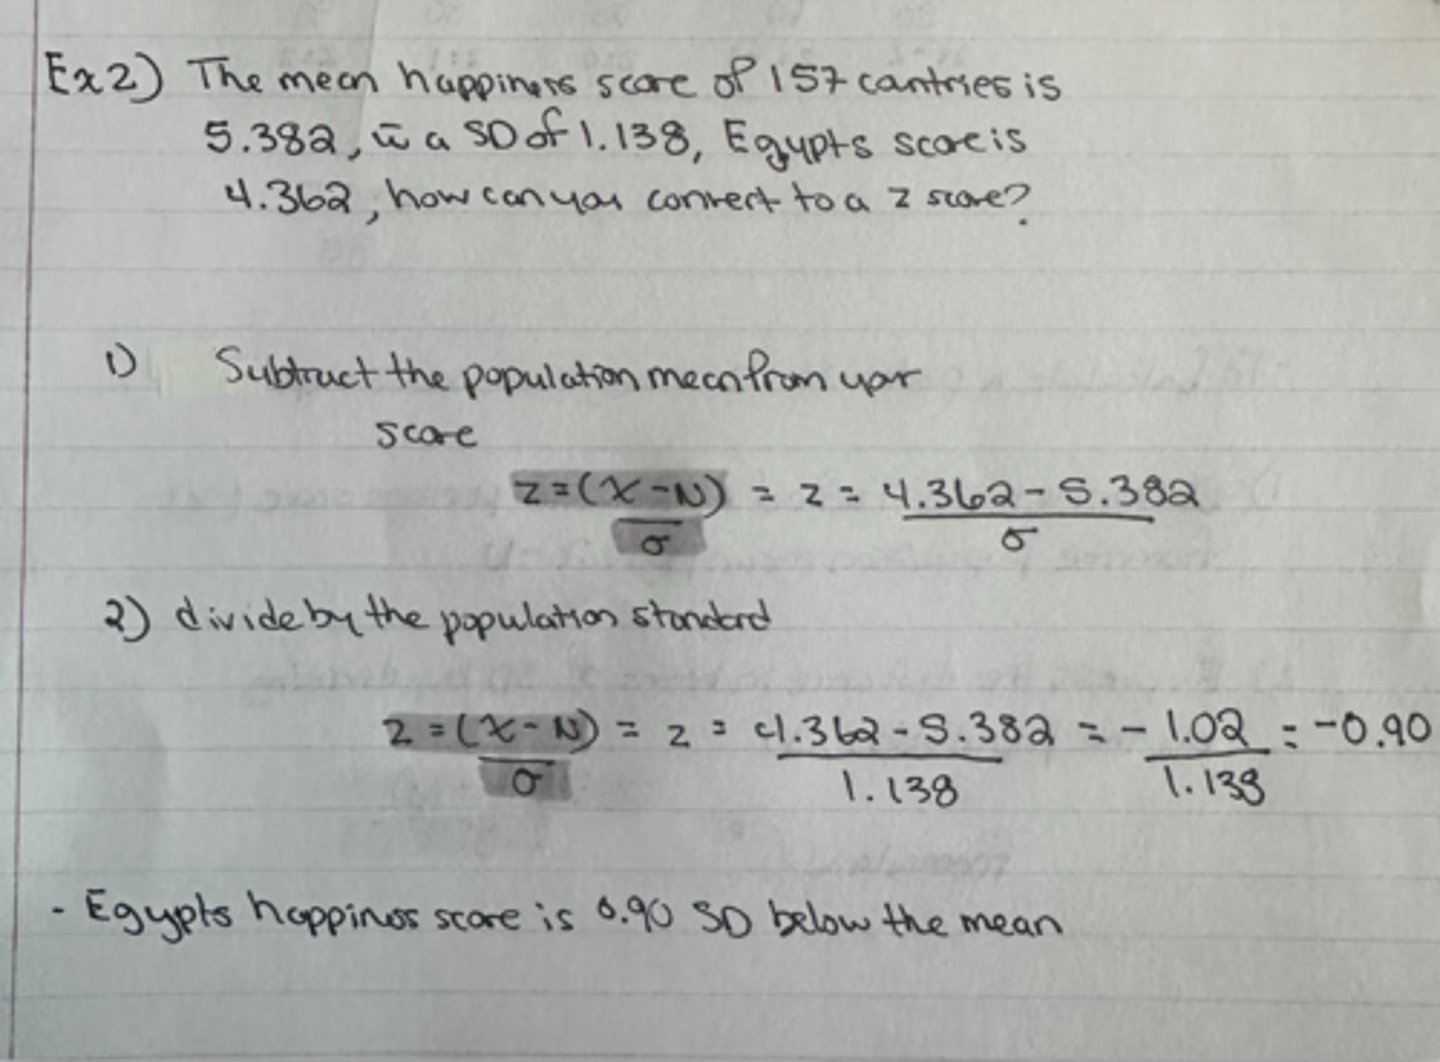 Ex2) The mean happiness score of 157 countries is
5.382, w̄ a SD of 1.138, Egypts score is
4.362, how can you convert to a z score?
1) Subtract the population mean from your
score
z = (X - N) = z = 4.362 - 5.382
σ σ
2) divide by the population standard
z = (X - N) = z = 4.362 - 5.382 = - 1.02 = -0.90
σ 1.138 1.138
- Egypts happiness score is 0.90 SD below the mean